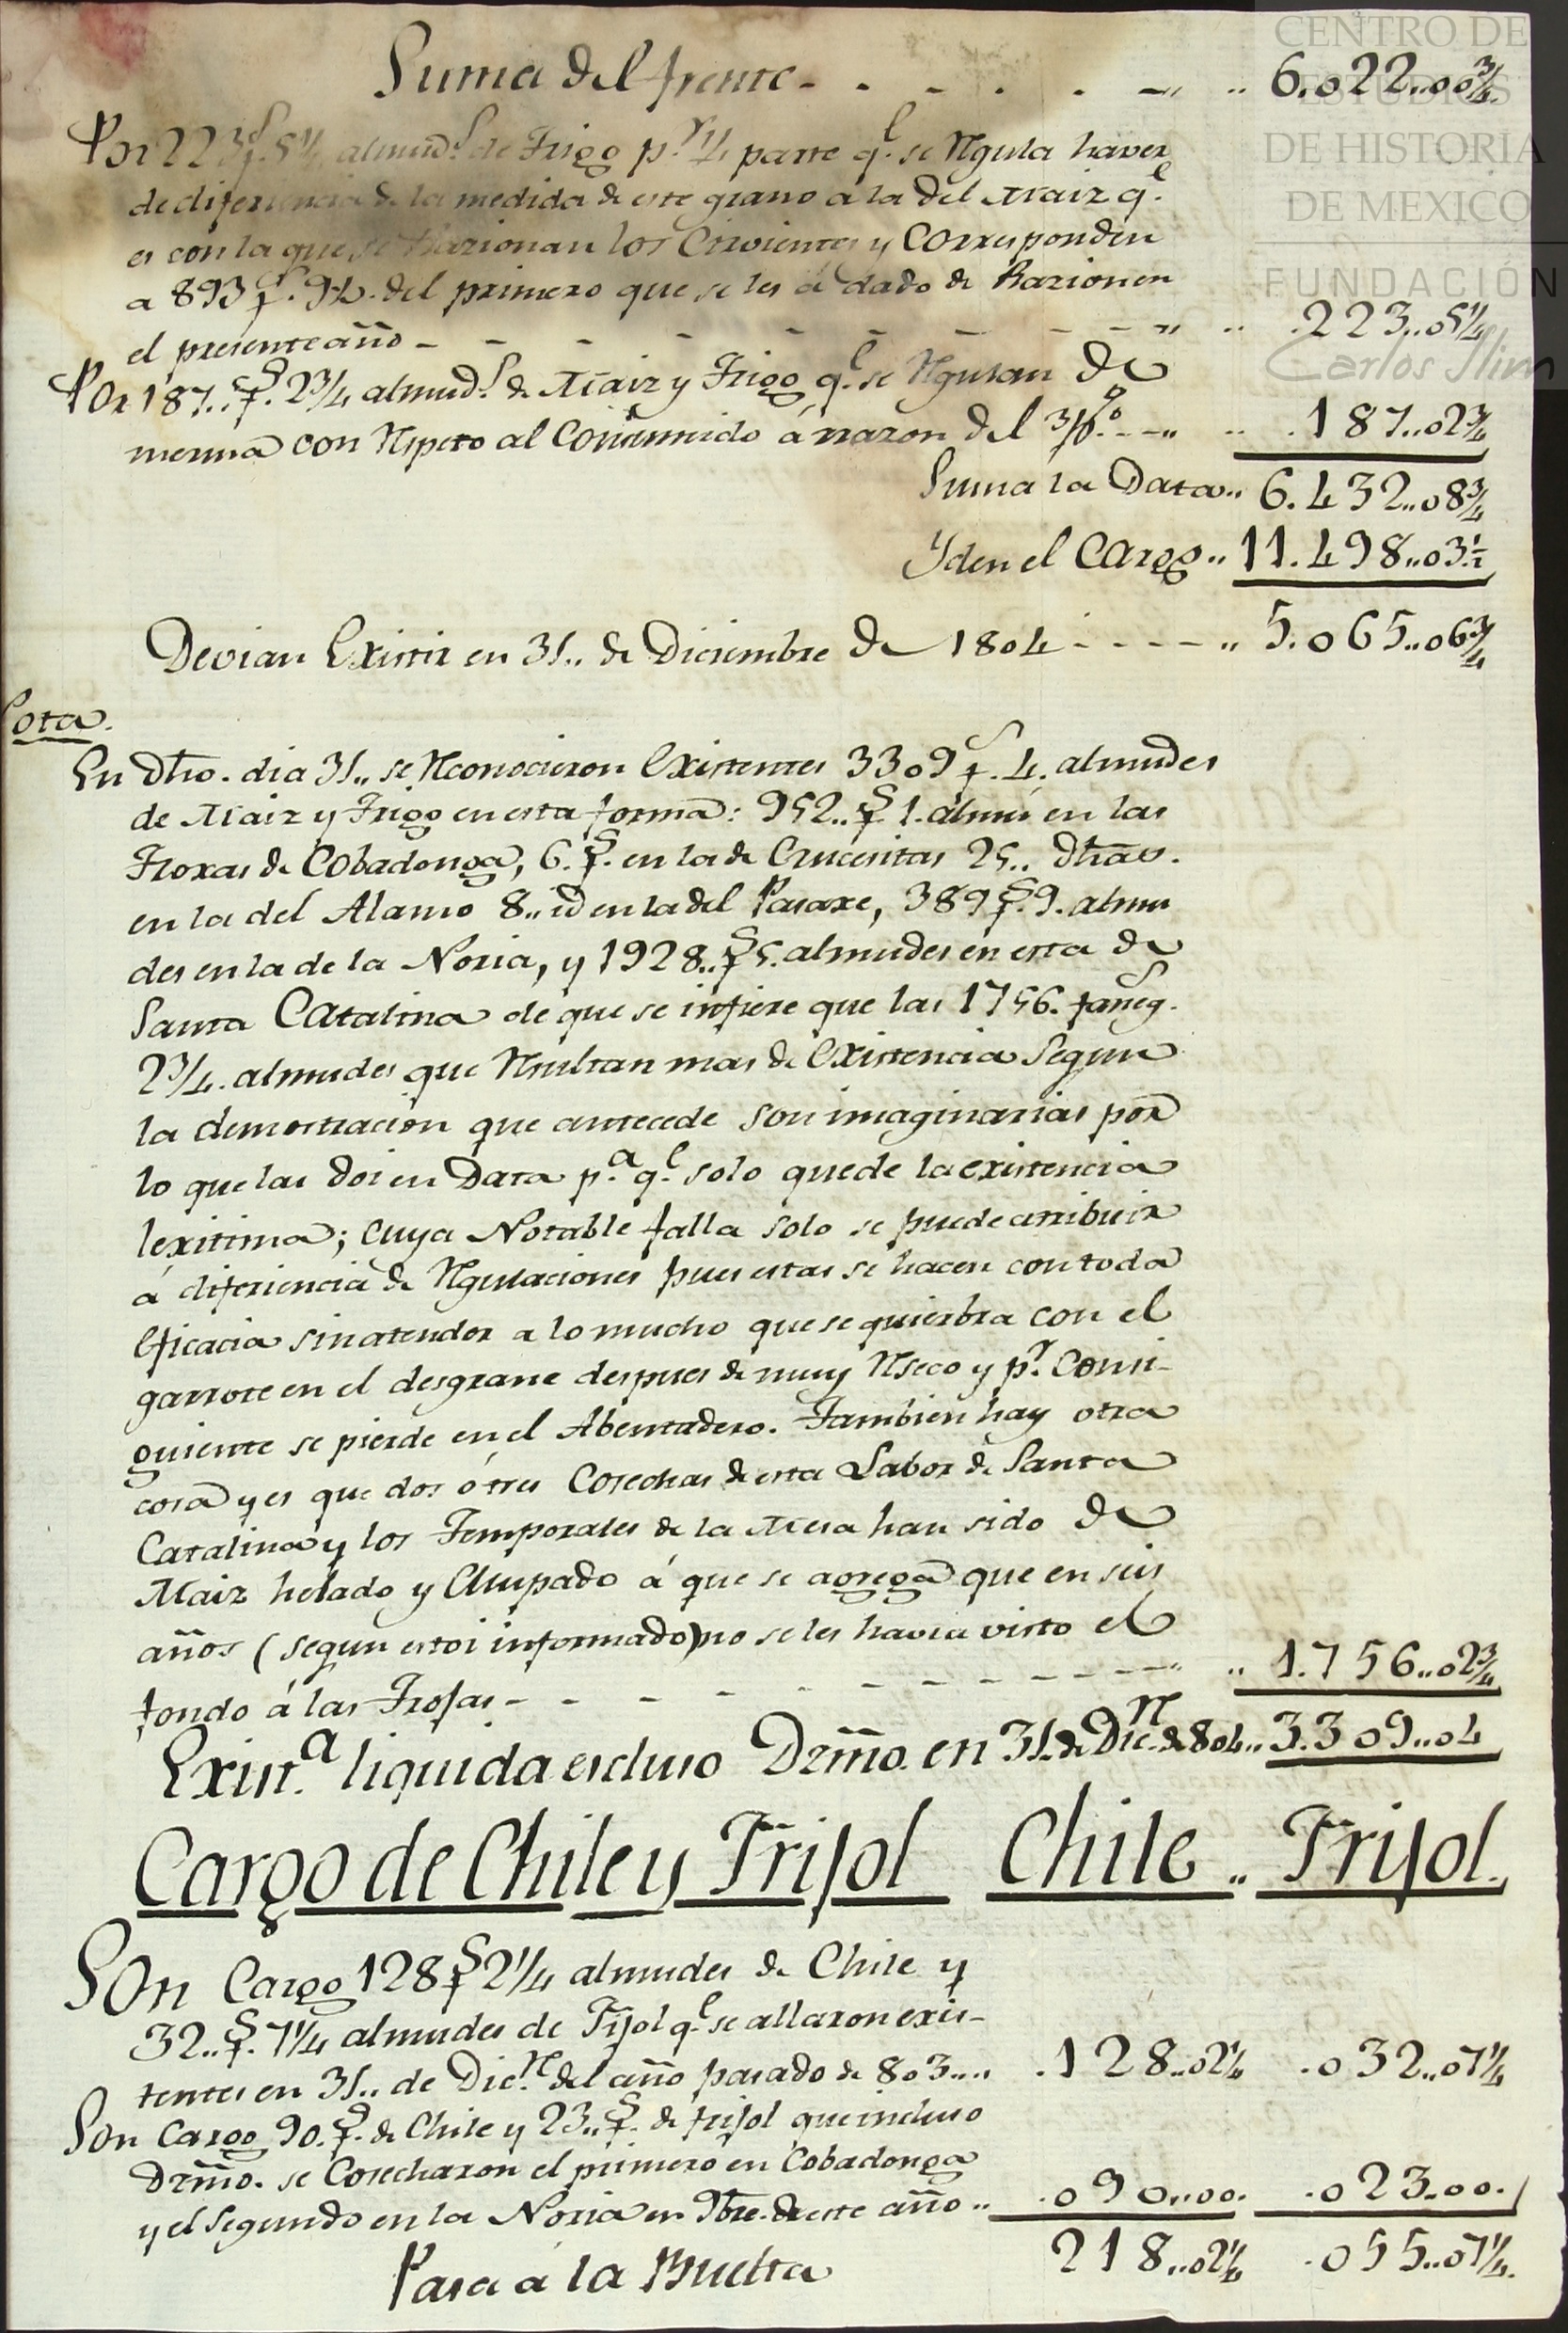 CENTRO DE
ESTUDIOS
DE HISTORIA
DE MEXICO
FUNDACIÓN
Carlos Slim
Suma del frente - - - - - 6.022..00¾
Por 223 f.s 5¼ almud.s de Trigo p.r ¼ parte q.e se Regula haver
de diferiencia de la medida de este grano a la del Maiz q.e
es con la que se Razionan los Cirvientes y Corresponden
a 893 f.s 9½. del primero que se les a dado de Razion en
el presente año - - - - - - - .223..05¼
Por 187.. f.s 2¾ almud.s de Maiz y Trigo q.e se Regulan de
merma con Respeto al Consumido á rrazon del 3 p.% - - - .187..02¾
Suma la Data.. 6.432..08¾
Yden el Cargo.. 11.498..03½
Devian Existir en 31.. de Diciembre de 1804 - - - - .. 5.065..06¾
Nota.
En dho. dia 31.. se Reconocieron Existentes 3309 f.s 4. almudes
de Maiz y Trigo en esta forma: 952.. f.s 1. almu en las
Troxas de Cobadonga, 6. f.s en la de Crucesitas 25.. dhas.
en la del Alamo 8.. id en la del Pasaxe, 389 f.s 9. almu
des en la de la Noria, y 1928.. f.s 5. almudes en esta de
Santa Catalina de que se infiere que las 1756. faneg.s
2¾. almudes que Resultan mas de Existencia Segun
la demostracion que antecede son imaginarias por
lo que las doi en Data p.a q.e solo quede la existencia
lexitima; cuya Notable falla solo se puede atribuir
á diferiencia de Regulaciones pues estas se hacen con toda
Eficacia sin atender a lo mucho que se quierbra con el
garrote en el desgrane despues de muy Reseco y p.r Consi-
guiente se pierde en el Abentadero. Tambien hay otra
cosa y es que dos ó tres Cosechas de esta Labor de Santa
Catalina y los Temporales de la Mesa han sido de
Maiz helado y Chupado á que se agrega que en seis
años (segun estoi informado) no se les havia visto el
fondo á las Trojas - - - - - - - - .. 1.756..02¾
Exist.a liquida escluso Dzmo. en 31. de Dic.re de 804.. 3.309..04
Cargo de Chile y Frijol Chile .. Frijol.
Son Cargo 128 f.s 2¼ almudes de Chile y
32.. f.s 7¼ almudes de Fijol q.e se allaron exis-
tentes en 31.. de Dic.re del año pasado de 803.... .128..02¼ .032..07¼
Son Cargo 90. f.s de Chile y 23.. f.s de frijol que incluso
Dzmo. se Cosecharon el primero en Cobadonga
y el Segundo en la Noria en 9bre. de este año .. .090...00. .023..00.
Pasa á la Buelta 218..02¼ .055..07¼.